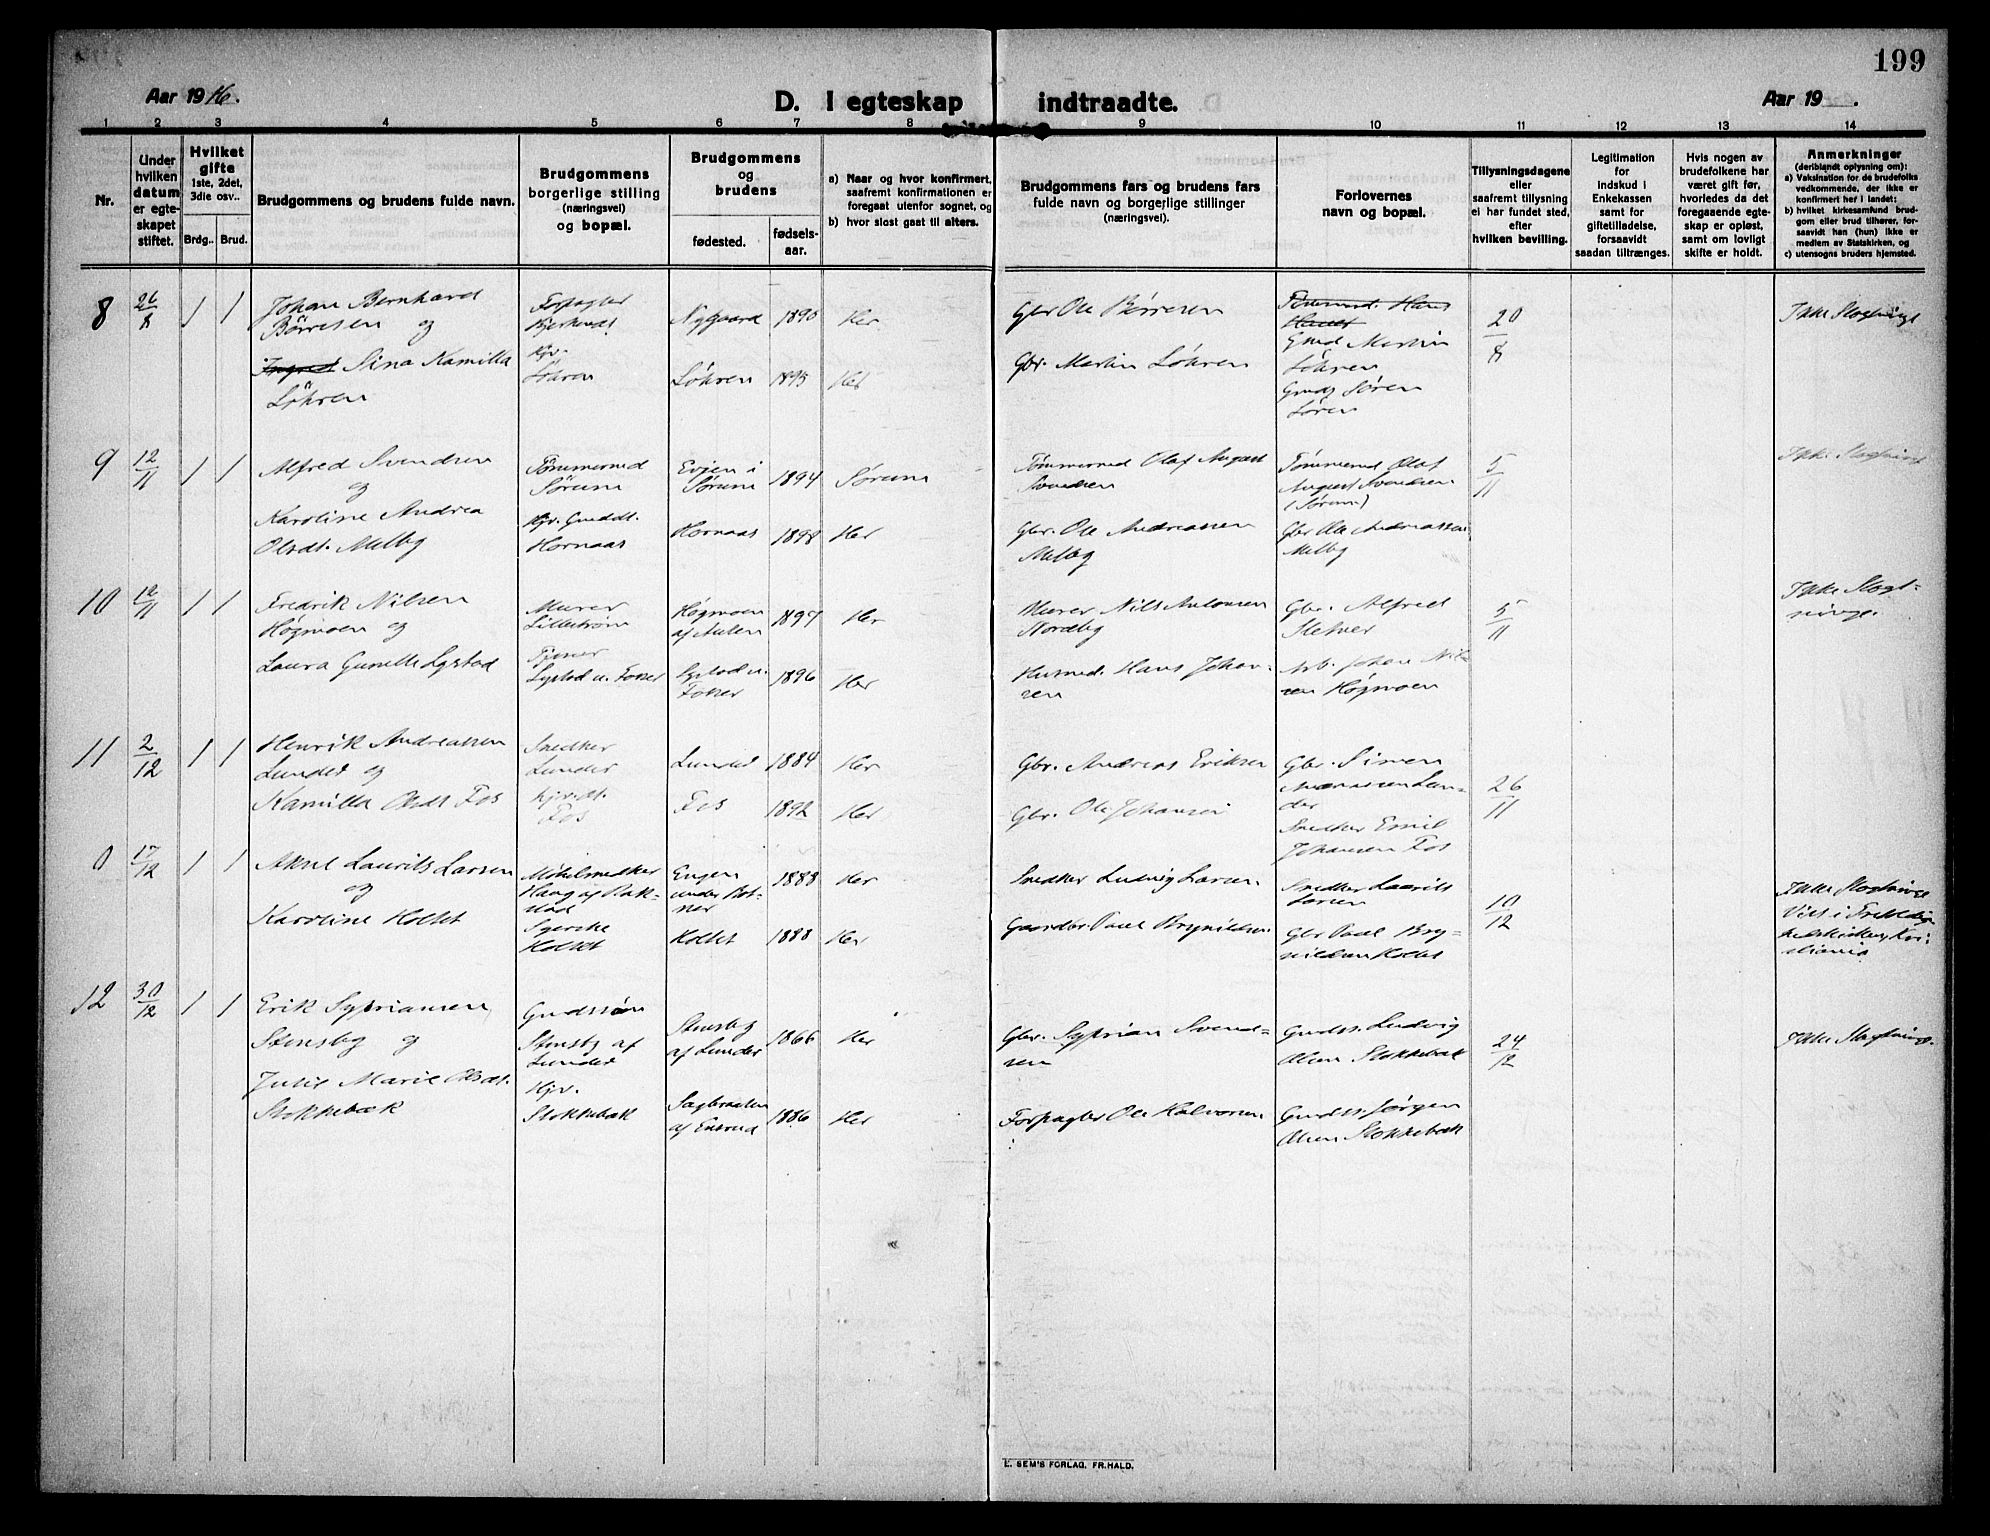 199
Aar 1916.
D. I egteskap indtraadte.
Aar 19 .
1 2 3 4 5 6 7 8 9 10 11 12 13 14
Nr.
Under hvilken datum er egteskapet stiftet.
Hvilket gifte
1ste, 2det, 3die osv..
Brdg.. Brud.
Brudgommens og brudens fulde navn.
Brudgommens
borgerlige stilling
(næringsvei)
og bopæl.
Brudgommens
og
brudens
fødested.
fødselsaar.
a) Naar og hvor konfirmert,
saafremt konfirmationen er
foregaat utenfor sognet, og
b) hvor sidst gaat til alters.
Brudgommens fars og brudens fars
fulde navn og borgerlige stillinger
(næringsvei).
Forlovernes
navn og bopæl.
Tillysningsdagene
eller
saafremt tillysning
ei har fundet sted,
efter
hvilken bevilling.
Legitimation
for
indskud i
Enkekassen
samt for
giftetilladelse,
forsaavidt
saadan tiltrænges.
Hvis nogen av
brudefolkene har
været gift før,
hvorledes da det
foregaaende egteskap er opløst,
samt om lovligt
skifte er holdt.
Anmerkninger
(deriblandt oplysning om):
a) Vaksination for de brudefolks
vedkommende, der ikke er
konfirmert her i landet;
b) hvilket kirkesamfund brudgom eller brud tilhører, forsaavidt han (hun) ikke er
medlem av Statskirken, og
c) utensogns bruders hjemsted.
8 26/8 1 1
Johan Bernhard
Börresen og
Sina Kamilla
Löhren
Forpagter
Kjv.
Löhren
Nygaard 1890 Her
Löhren 1895 Her
Gbr Ole Børresen
Gbr. Martin Löhren
Martin
Löhren
Søren
20/8
Ikke Slegtninge
9 12/11 1 1
Alfred Svendsen
og
Karoline Andrea
Olsdt. Melby
Tömmermd
Sörum
Hornaas
Evjen i
Sörum 1894 Sørum
Hornaas 1898 Her
Tömmermd Olaf August
Svendsen
Gbr. Ole Andreassen
Melby
Tömmermd Olaf
August Svendsen
(Sørum)
Gbr Ole Andreassen
Melby
5/11
Ikke Slegtninge
10 12/11 1 1
Fredrik Nilsen
Høgmoen og
Laura Gunelle Lystad
Murer
Lillestrøm
Tjener
Høgmoen
af Aulen 1897 Her
1896 Her
Murer Nils Antonsen
Nordby
Husmd. Hans Johansen
Gbr. Alfred
Arb. Johan Nilsen Høgmoen
5/11
Ikke Slegtninge.
11 2/12 1 1
Henrik Andreassen
Lunder og
Kamilla Olsdt Fos
Snedker
Lunder
Fos
Lunder 1884 Her
Fos 1892 Her
Gbr. Andreas Eriksen
Gbr. Ole Johansen
Gbr. Simen
Andreassen Lunder
Snedker Emil
Johansen Fos
26/11
0 17/12 1 1
Aksel Laurits Larsen
og
Karoline Holtet
Möbelsnedker
Haug af Rakstad
Syerske
Holtet
Engen
under 1888 Her
Holtet 1888 Her
Snedker Ludvig Larsen
Gaardbr. Paul Brynildsen
Snedker Laurits
Larsen
Gbr Paul Brynildsen Holtet
10/12
Ikke Slegtninge
12 30/12 1 1
Erik Sypriansen
Stensby og
Julie Marie Olsdt.
Stokkebæk
Gmdssön
Stensby af
Lunder
Kjv.
Stokkebæk
Stensby
af Lunder 1866 Her
Sagbraaten
1886 Her
Gbr. Syprian Svendsen
Forpagter Ole Halvorsen
Gmdss. Ludvig
Olsen Stokkebæk
Gmdss. Jörgen
Olsen Stokkebæk
24/12
Ikke Slegtninge.
E. SEM'S FORLAG, FR.HALD.